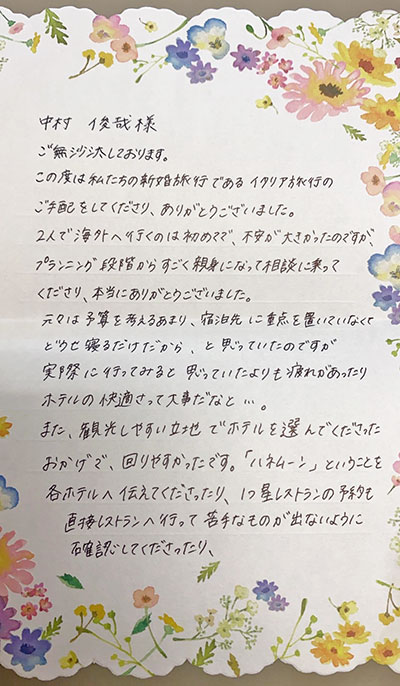 中村 俊哉様
ご無沙汰しております。
この度は私たちの新婚旅行であるイタリア旅行の
ご手配をしてくださり、ありがとうございました。
2人で海外へ行くのは初めてで、不安が大きかったのですが、
プランニング段階からすごく親身になって相談に乗って
くださり、本当にありがとうございました。
元々は予算を考えるあまり、宿泊先に重点を置いていなくて
どうせ寝るだけだから、と思っていたのですが
実際に行ってみると思っていたよりも疲れがあったり
ホテルの快適さって大事だなと…。
また、観光しやすい立地でホテルを選んでくださった
おかげで、回りやすかったです。「ハネムーン」ということを
各ホテルへ伝えてくださったり、1つ星レストランの予約も
直接レストランへ行って苦手なものが出ないように
確認してくださったり、